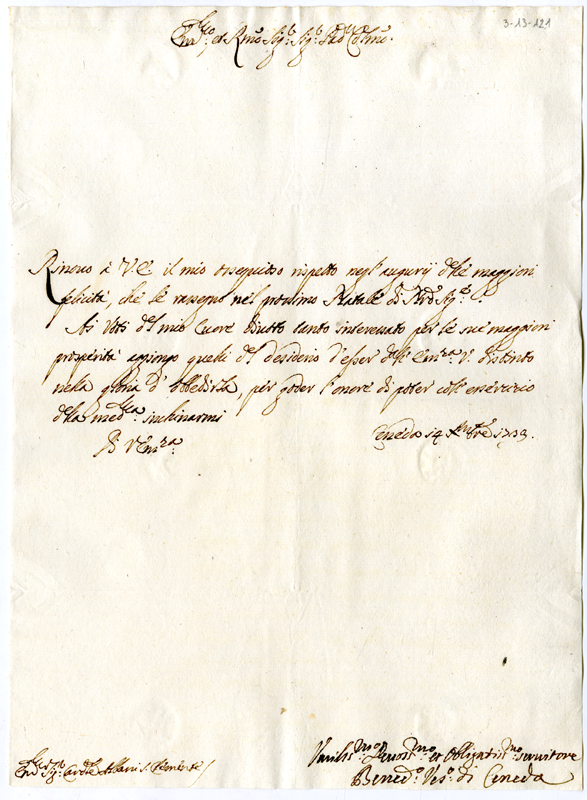 3-13-121
Em.mo et Rmo Sig.r Sig.r Pad.e Col.mo
Rinovo à V E il mio ossequioso rispetto negl'augurij delle maggiori
felicità, che le rassegno nel prossimo Natale di Nro Sig.re
Ai Voti del mio Cuore divoto tanto interessato per le sue maggiori
prosperità aggiungo quelli del desiderio d'esser dall'Em.za V. distinto
nella gloria d'obbedirla, per goder l'onore di poter coll'esercizio
della med.ma inchinarmi
Di V Em.za
Ceneda 14 Xmbre 1733.
Em.mo Sig.r Card.le Albani S. Clemente
Umiliss.mo Devotiss.mo et Obligatiss.mo servitore
Bened.o Ves.o di Ceneda